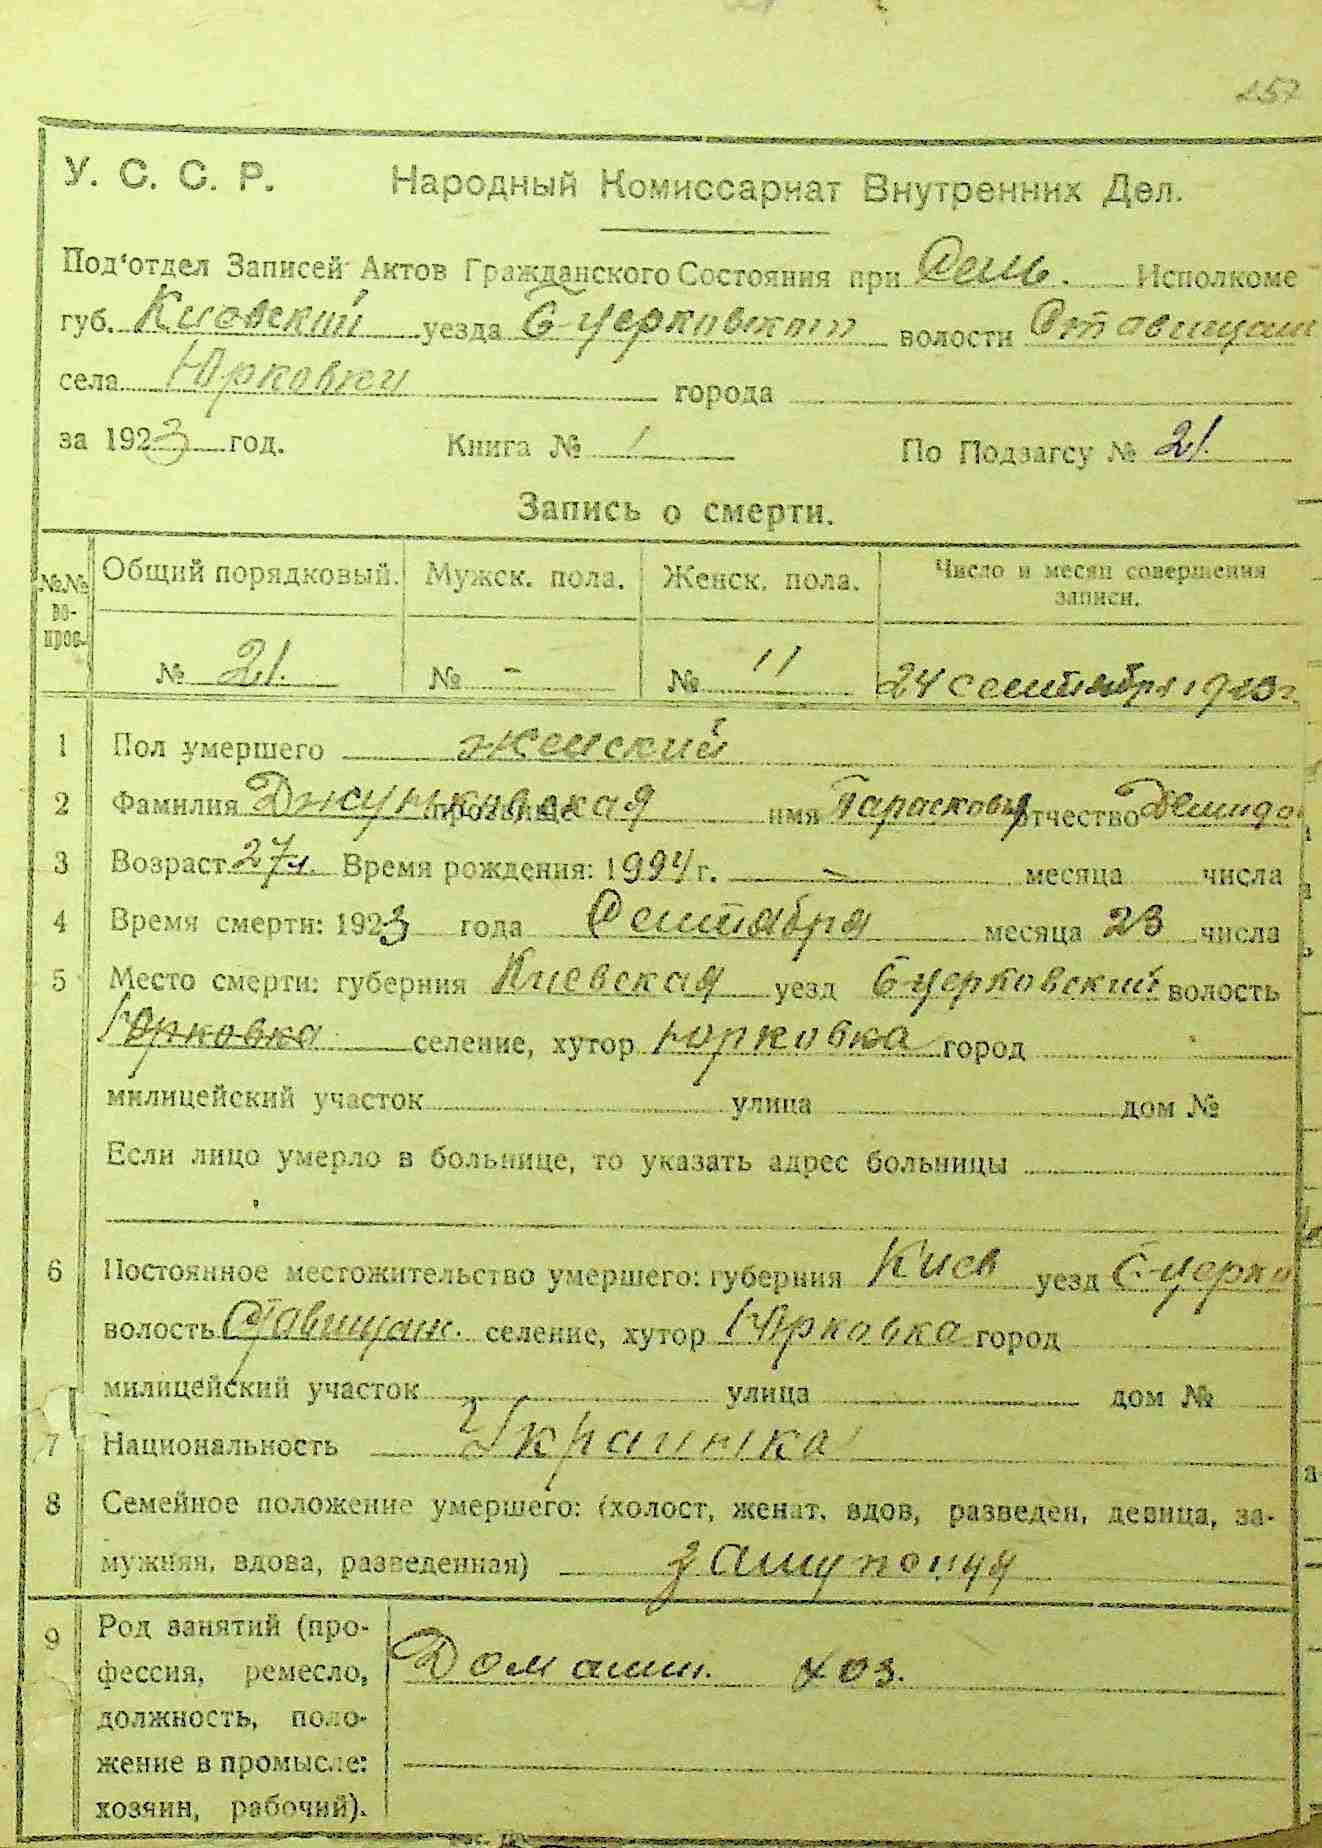 257
У. С. С. Р. Народный Комиссариат Внутренних Дел.
Под'отдел Записей Актов Гражданского Состояния при Сель. Исполкоме
губ. Киевский уезда Б-церковского волости Ставищан
села Юрковки города
за 1923 год. Книга № 1 По Подзагсу № 21.
Запись о смерти.
№№ во-прос. Общий порядковый. Мужск. пола. Женск. пола. Число и месяц совершения записи.
№ 21. № - № 11 24 сентября 1923 г.
1 Пол умершего женский
2 Фамилия прозвище Джуньковская имя Парасковья отчество Демидо
3 Возраст 27 л. Время рождения: 1994 г. месяца числа
4 Время смерти: 1923 года Сентября месяца 23 числа
5 Место смерти: губерния Киевская уезд Б-церковский волость
Юрковка селение, хутор Юрковка город
милицейский участок улица дом №
Если лицо умерло в больнице, то указать адрес больницы
6 Постоянное местожительство умершего: губерния Киев уезд Б-церко
волость Ставищан. селение, хутор Юрковка город
милицейский участок улица дом №
7 Национальность Украинка
8 Семейное положение умершего: (холост, женат, вдов, разведен, девица, за-
мужняя, вдова, разведенная)
9 Род занятий (про-
фессия, ремесло, Домашн. хоз.
должность, поло-
жение в промысле:
хозяин, рабочий).